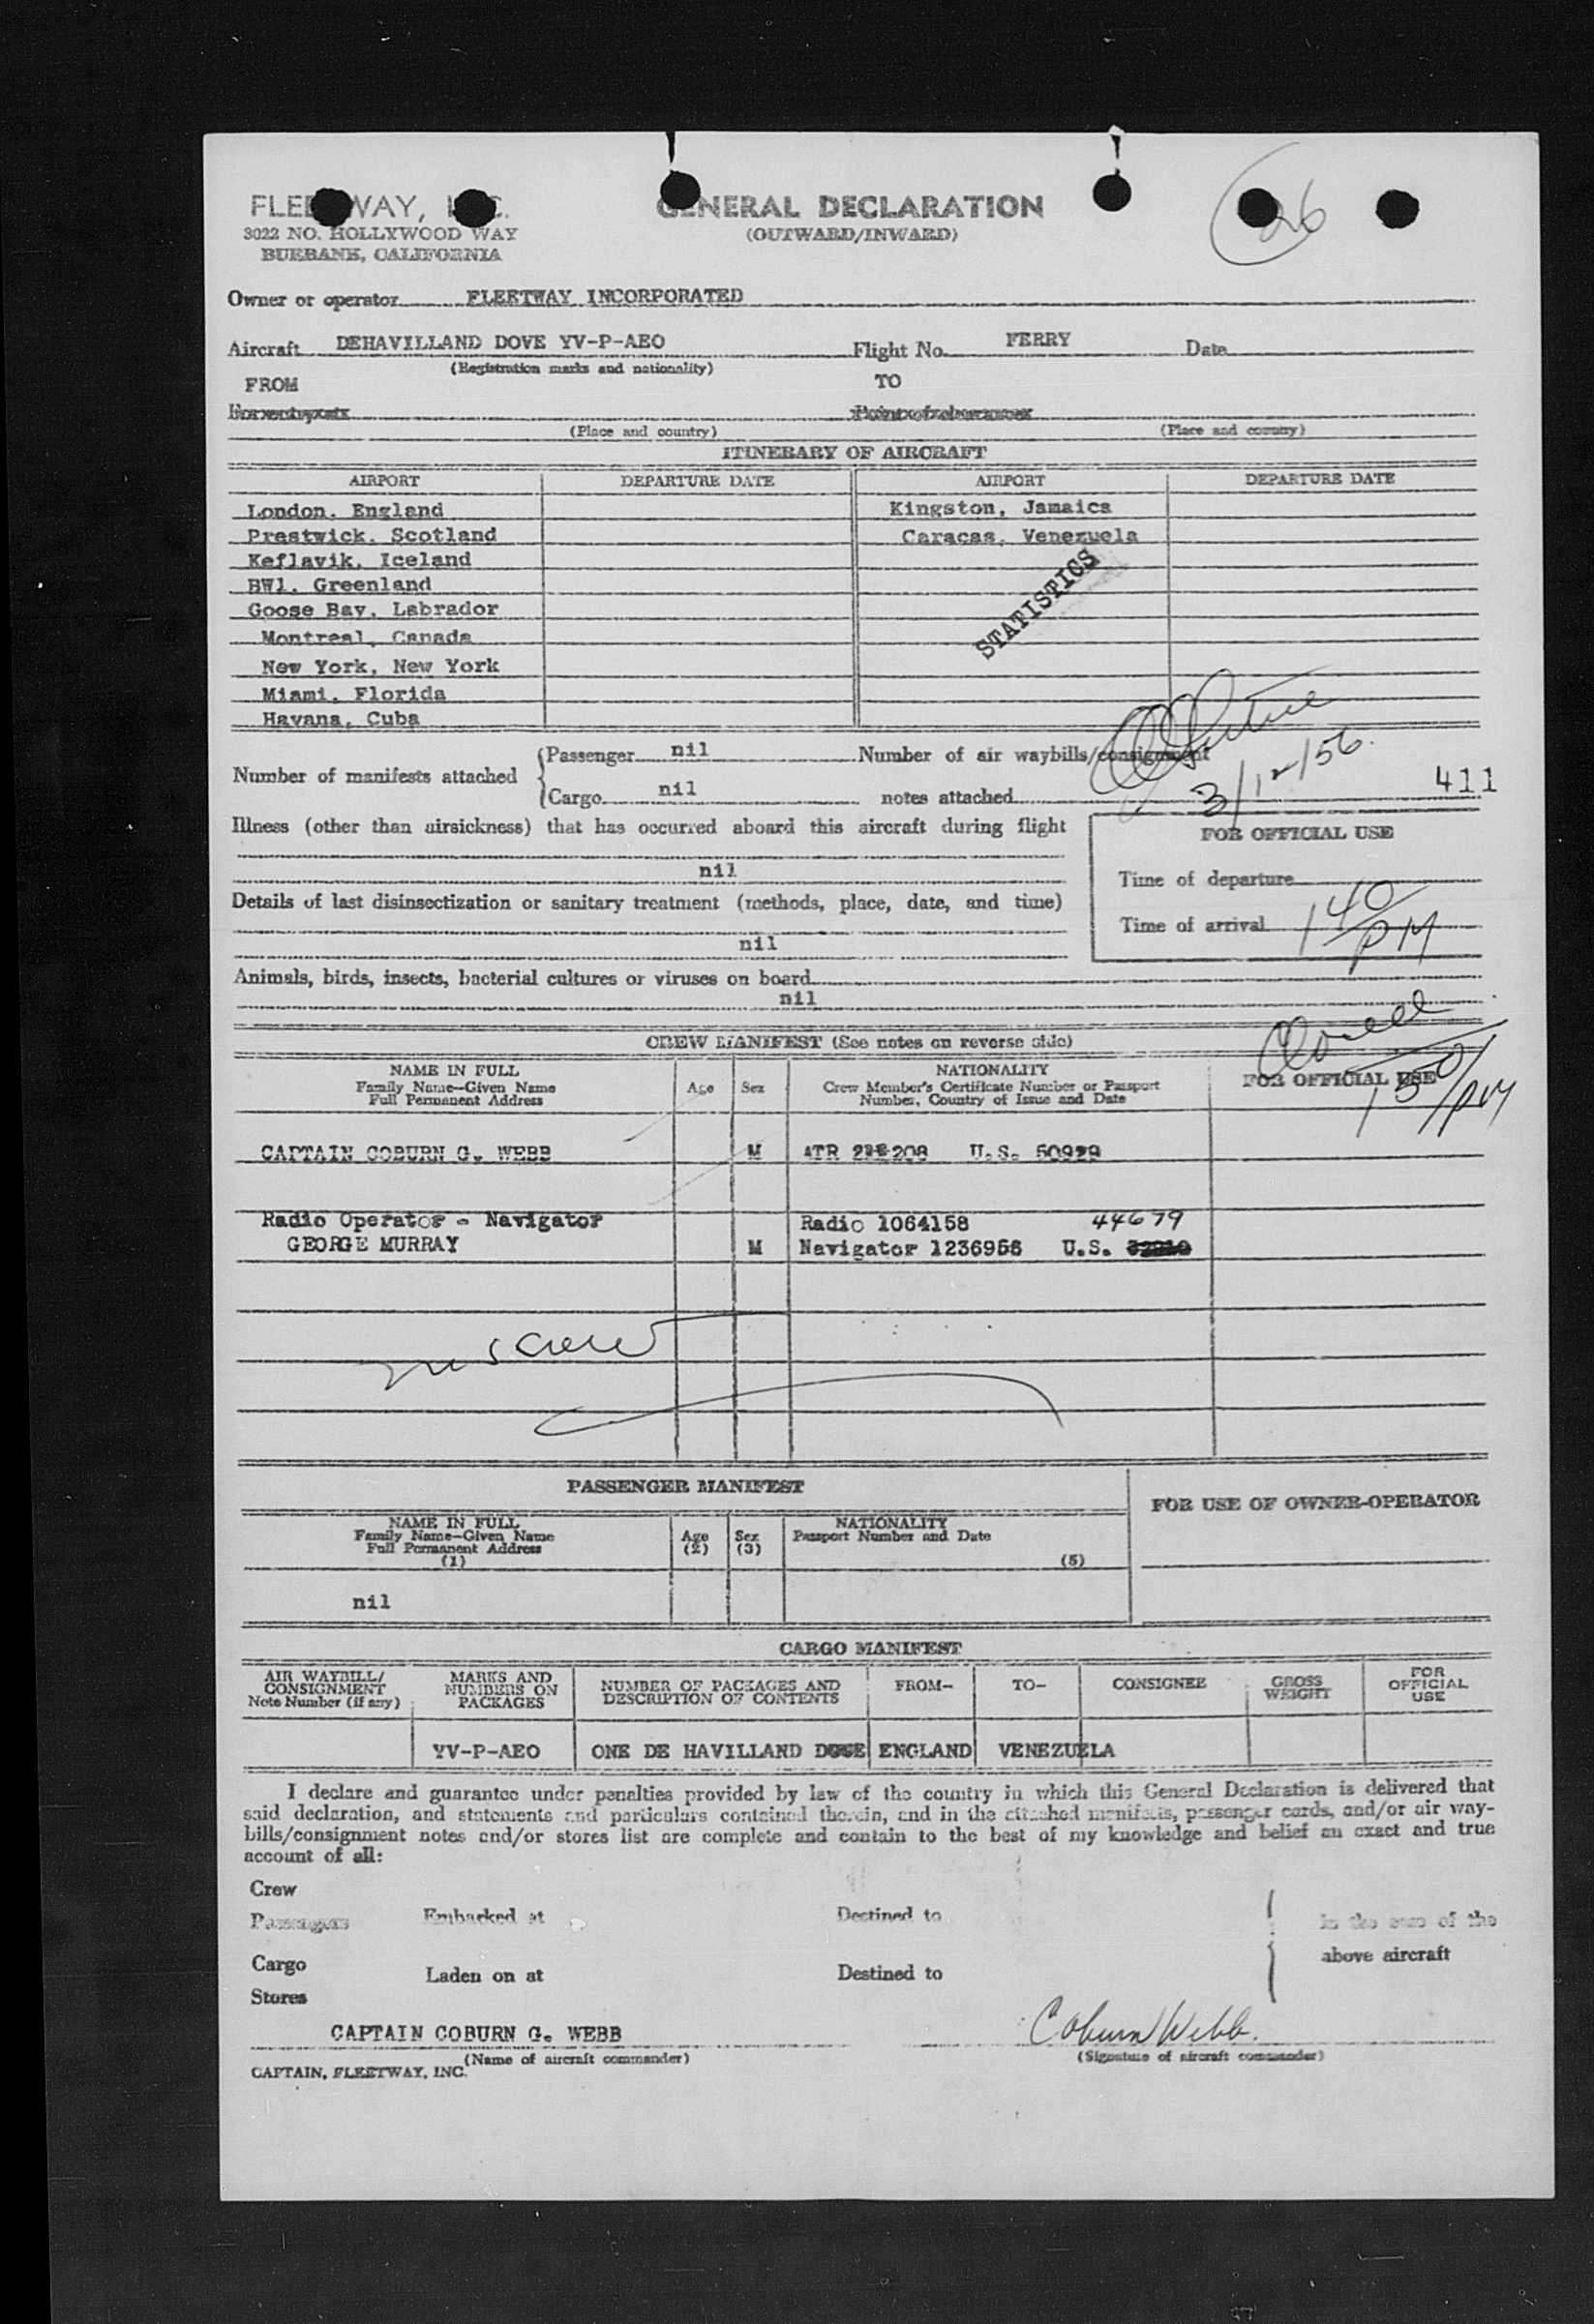 FLEETWAY, INC.
3022 NO. HOLLYWOOD WAY
BURBANK, CALIFORNIA
GENERAL DECLARATION
(OUTWARD/INWARD)
26
Owner or operator FLEETWAY INCORPORATED
Aircraft DEHAVILLAND DOVE YV-P-AEO Flight No. FERRY Date
(Registration marks and nationality)
FROM TO
(Place and country) (Place and country)
ITINERARY OF AIRCRAFT
AIRPORT DEPARTURE DATE AIRPORT DEPARTURE DATE
London, England Kingston, Jamaica
Prestwick, Scotland Caracas, Venezuela
Keflavik, Iceland
BW1, Greenland
Goose Bay, Labrador
Montreal, Canada
New York, New York
Miami, Florida
Havana, Cuba
STATISTICS
Number of manifests attached
Passenger nil Number of air waybills/consignment
Cargo nil notes attached
3/12/56.
411
Illness (other than airsickness) that has occurred aboard this aircraft during flight
nil
Details of last disinsectization or sanitary treatment (methods, place, date, and time)
nil
Animals, birds, insects, bacterial cultures or viruses on board
nil
FOR OFFICIAL USE
Time of departure
Time of arrival 140 PM
CREW MANIFEST (See notes on reverse side)
NAME IN FULL
Family Name—Given Name
Full Permanent Address
Age
Sex
NATIONALITY
Crew Member's Certificate Number or Passport
Number, Country of Issue and Date
FOR OFFICIAL USE
150/PM
CAPTAIN COBURN G. WEBB M ATR 208 U.S. 50979
Radio Operator - Navigator Radio 1064158 44679
GEORGE MURRAY M Navigator 1236958 U.S.
crew
PASSENGER MANIFEST
FOR USE OF OWNER-OPERATOR
NAME IN FULL
Family Name—Given Name
Full Permanent Address
(1)
Age
(2)
Sex
(3)
NATIONALITY
Passport Number and Date
(5)
nil
CARGO MANIFEST
AIR WAYBILL/
CONSIGNMENT
Note Number (if any)
MARKS AND
NUMBERS ON
PACKAGES
NUMBER OF PACKAGES AND
DESCRIPTION OF CONTENTS
FROM—
TO—
CONSIGNEE
GROSS
WEIGHT
FOR
OFFICIAL
USE
YV-P-AEO ONE DE HAVILLAND DOVE ENGLAND VENEZUELA
I declare and guarantee under penalties provided by law of the country in which this General Declaration is delivered that
said declaration, and statements and particulars contained therein, and in the attached manifests, passenger cards, and/or air way-
bills/consignment notes and/or stores list are complete and contain to the best of my knowledge and belief an exact and true
account of all:
Crew
Passengers Embarked at Destined to in the case of the
above aircraft
Cargo Laden on at Destined to
Stores
CAPTAIN COBURN G. WEBB Coburn Webb.
(Name of aircraft commander) (Signature of aircraft commander)
CAPTAIN, FLEETWAY, INC.